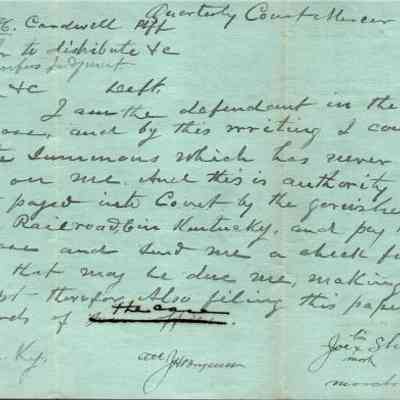 Quarterly Court Mercer
C. Cardwell Plff
to distribute &c
Judgment
&c Deft.
I am the defendant in the
and by this writing I
Summons which has never
on me. And this is authority
paged into Court by the garnishee
Railroad Co in Kentucky, and pay
and send me a check for
that may be due me, making
therefor. Also filing this paper
the case
of
Ky.
att J H
Joe his
x
mark